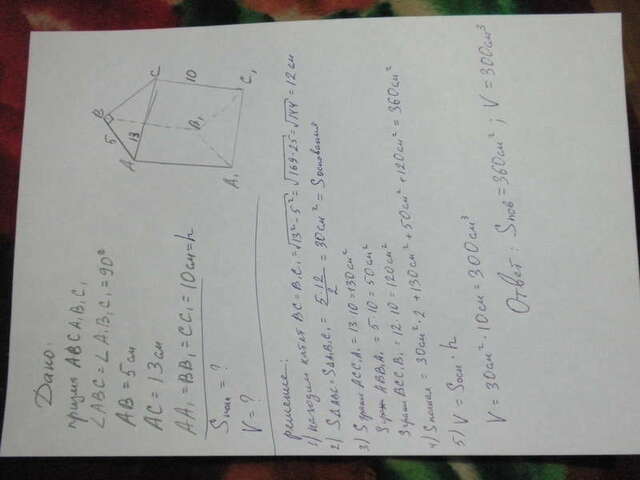 Дано:
призма ABCA₁B₁C₁
∠ABC = ∠A₁B₁C₁ = 90°
AB = 5 см
AC = 13 см
AA₁ = BB₁ = CC₁ = 10 см = h
Sпов = ?
V = ?
A
B
C
5
13
10
A₁
B₁
C₁
решение:
1) находим катет BC = B₁C₁ = √13² - 5² = √169-25 = √144 = 12 см
2) S∆ABC = S∆A₁B₁C₁ = 5·12/2 = 30 см² = Sоснования
3) Sграни ACC₁A₁ = 13·10 = 130 см²
Sграни ABB₁A₁ = 5·10 = 50 см²
Sграни BCC₁B₁ = 12·10 = 120 см²
4) Sполная = 30 см²·2 + 130 см² + 50 см² + 120 см² = 360 см²
5) V = Sосн · h
V = 30 см² · 10 см = 300 см³
Ответ: Sпов = 360 см²; V = 300 см³